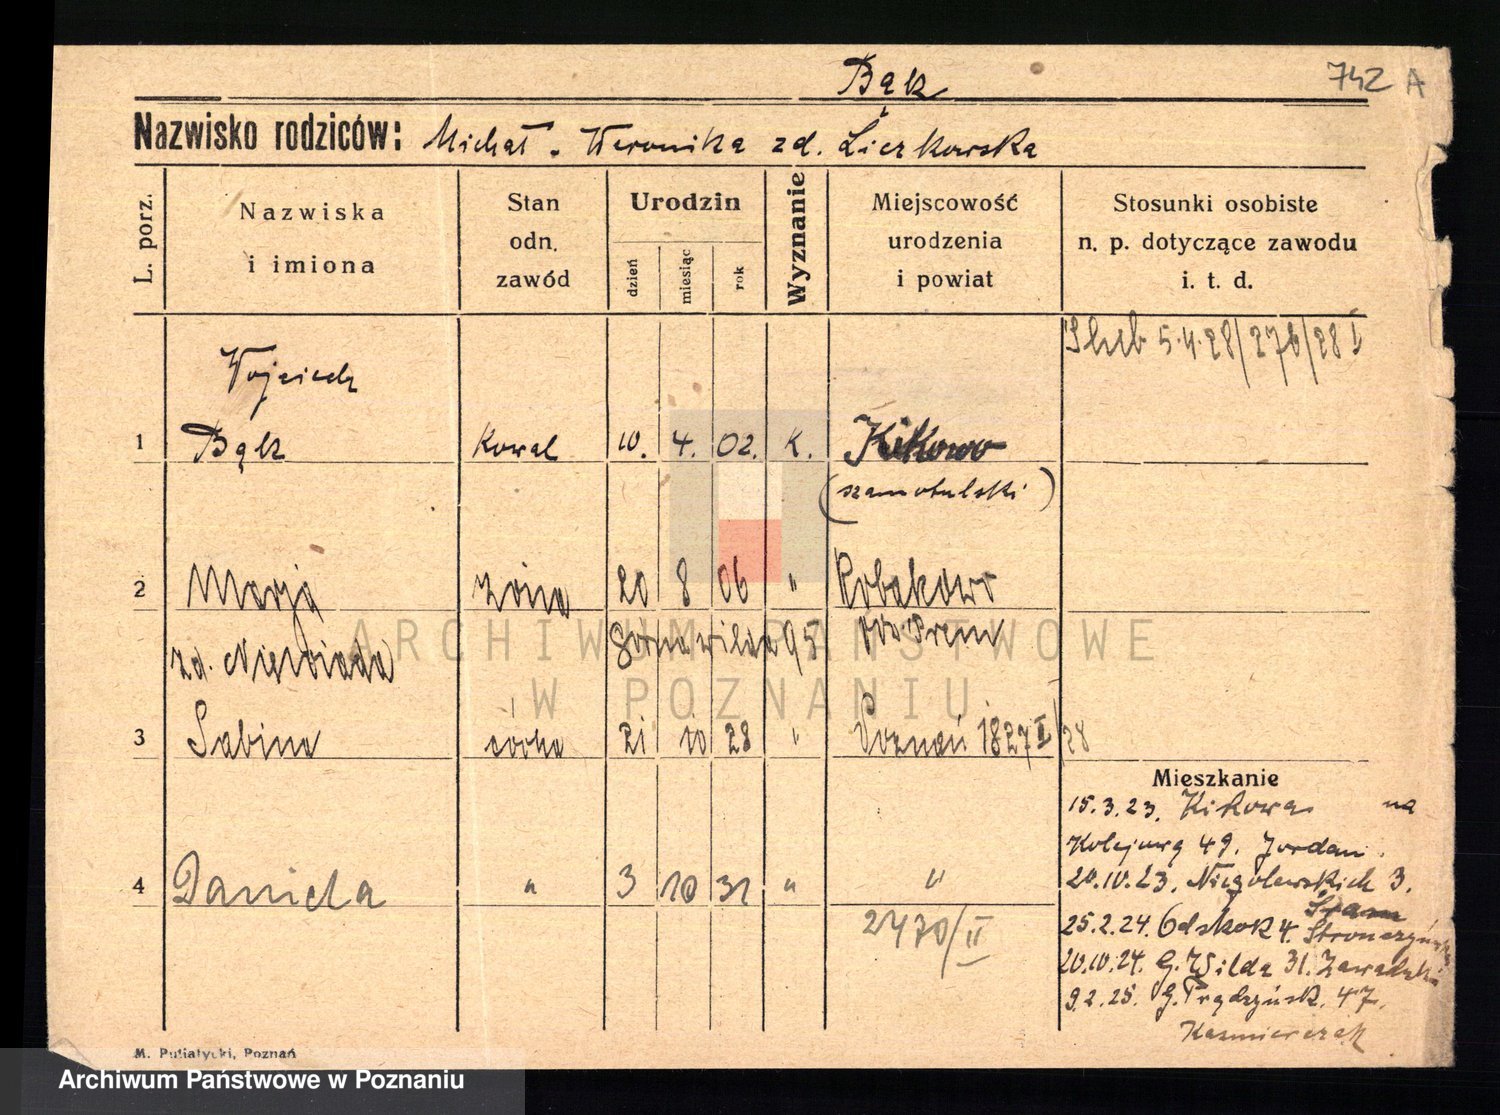 Bąk
742 A
Nazwisko rodziców: Michał - Weronika zd. Liczkowska
L. porz.
Nazwiska i imiona
Stan odn. zawód
Urodzin
dzień miesiąc rok
Wyznanie
Miejscowość urodzenia i powiat
Stosunki osobiste n. p. dotyczące zawodu i. t. d.
5.4.28/276/28 I
Wojciech
1 Bąk Kowal 10. 4. 02. K. Kikowo
(szamotulski)
2 Marja żona 20 8 06 " Robakowo
zd. Niewiada Górna Wilda 95
3 Sabina córka 21 10 28 " Poznań 1827 II/28
Mieszkanie
15.3.23. Kikowa na
Kolejową 49. Jordan.
20.10.23. Niegolewskich 3.
25.2.24. Odskok 4.
20.10.24. G. Wilda 31. Zawadzki
9.2.25. G. Prądzyńsk. 47.
Kaźmierczak
4 Daniela " 3 10 31 " "
2470/II
M. Putiatycki, Poznań
ARCHIWUM PAŃSTWOWE
W POZNANIU
Archiwum Państwowe w Poznaniu